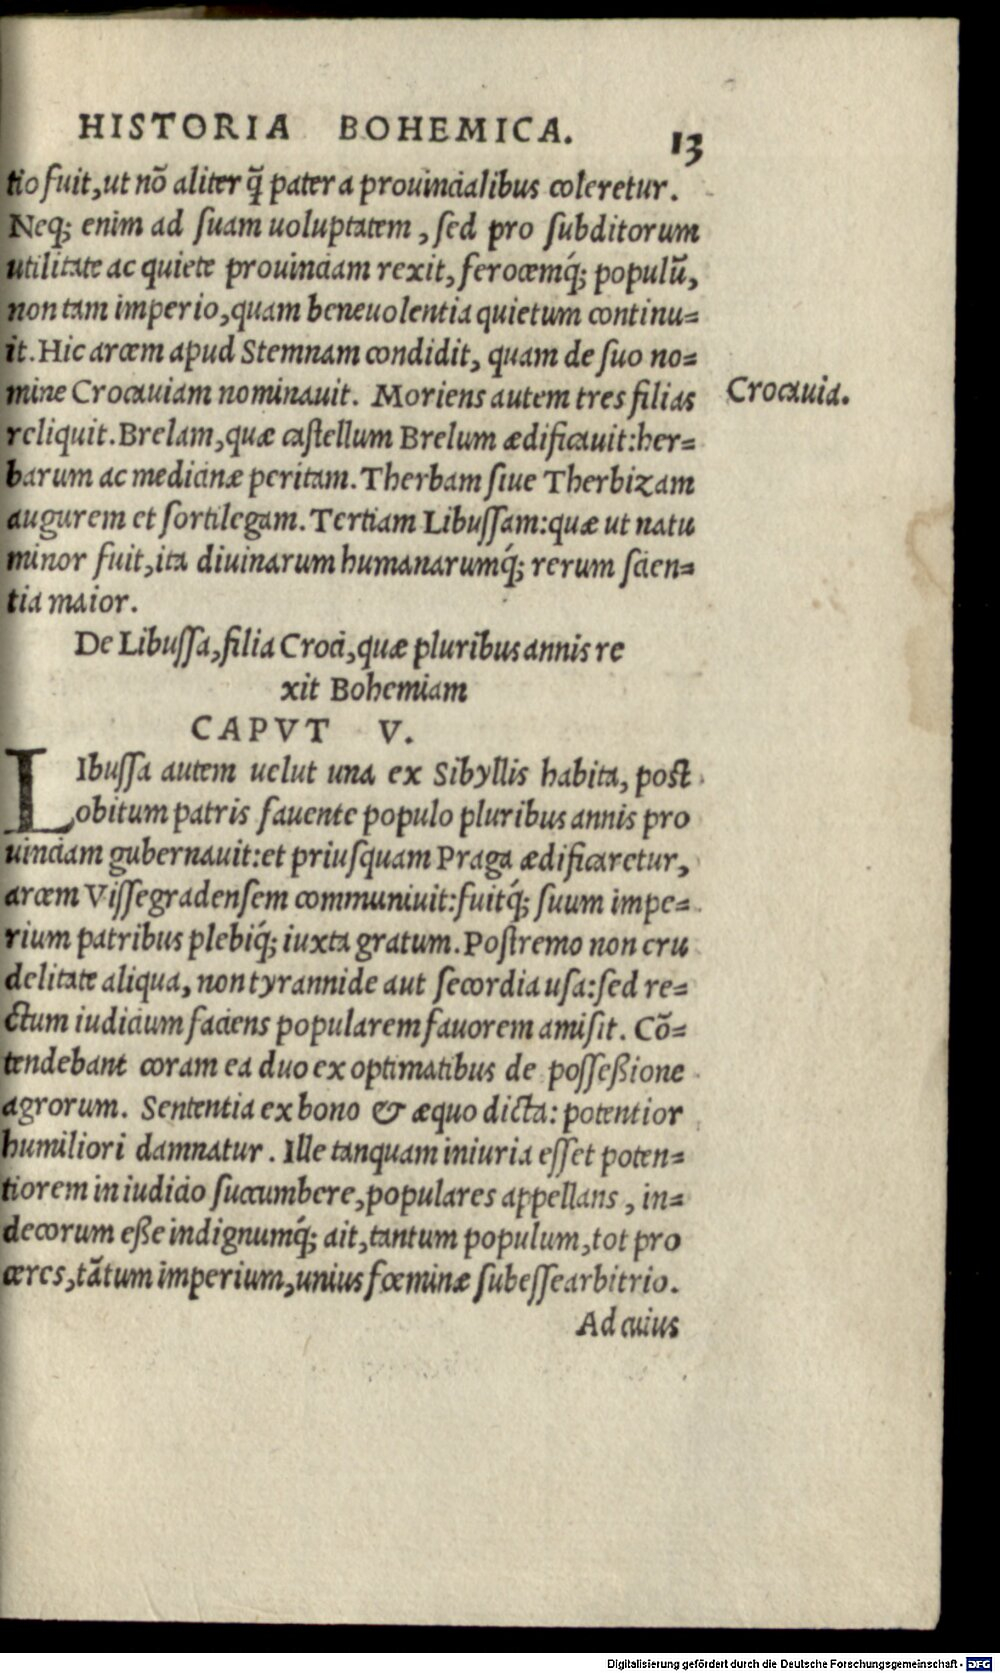 HISTORIA BOHEMICA. 13
tio fuit, ut nõ aliter q̃ pater a prouincialibus coleretur.
Neq; enim ad suam uoluptatem, sed pro subditorum
utilitate ac quiete prouinciam rexit, ferocemq́; populũ,
non tam imperio, quam beneuolentia quietum continu=
it. Hic arcem apud Stemnam condidit, quam de suo no=
mine Crocauiam nominauit. Moriens autem tres filias
Crocauia.
reliquit. Brelam, quæ castellum Brelum ædificauit: her=
barum ac medicinæ peritam. Therbam siue Therbizam
augurem et sortilegam. Tertiam Libussam: quæ ut natu
minor fuit, ita diuinarum humanarumq́; rerum scien=
tia maior.
De Libussa, filia Croci, quæ pluribus annis re
xit Bohemiam
CAPVT V.
LIbussa autem uelut una ex Sibyllis habita, post
obitum patris fauente populo pluribus annis pro
uinciam gubernauit: et priusquam Praga ædificaretur,
arcem Vissegradensem communiuit: fuitq́; suum impe=
rium patribus plebiq́; iuxta gratum. Postremo non cru
delitate aliqua, non tyrannide aut secordia usa: sed re=
ctum iudicium faciens popularem fauorem amisit. Cõ=
tendebant coram ea duo ex optimatibus de posseßione
agrorum. Sententia ex bono & æquo dicta: potentior
humiliori damnatur. Ille tanquam iniuria esset poten=
tiorem in iudicio succumbere, populares appellans, in=
decorum eße indignumq́; ait, tantum populum, tot pro
ceres, tãtum imperium, unius fœminæ subesse arbitrio.
Ad cuius
Digitalisierung gefördert durch die Deutsche Forschungsgemeinschaft - DFG